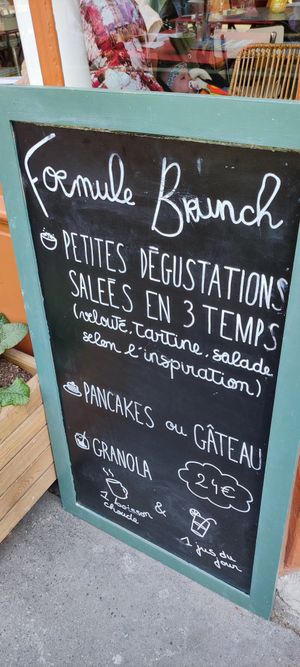 Formule Brunch
PETITES DÉGUSTATIONS
SALEES EN 3 TEMPS
(velouté, tartine, salade
selon l'inspiration)
PANCAKES ou GÂTEAU
GRANOLA
24€
1 boisson
chaude
&
1 jus du
jour